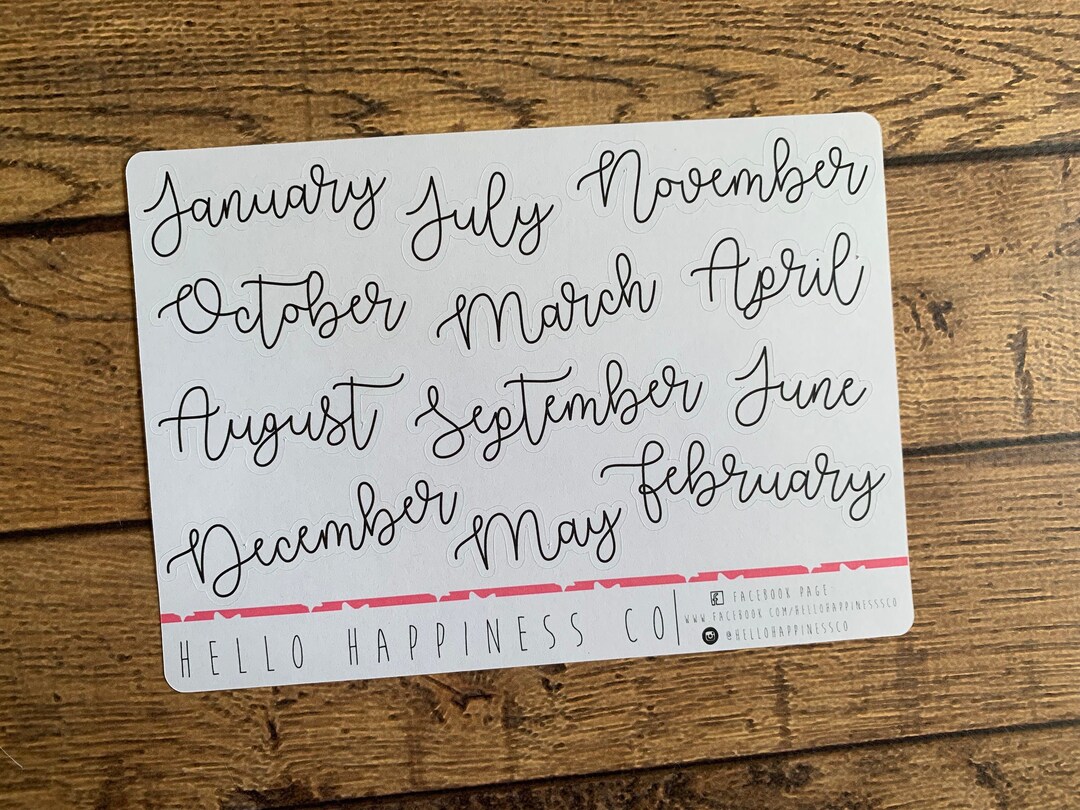 January July November
October March April
August September June
December May February
HELLO HAPPINESS CO
FACEBOOK PAGE:
WWW.FACEBOOK.COM/HELLOHAPPINESSSCO
@HELLOHAPPINESSCO